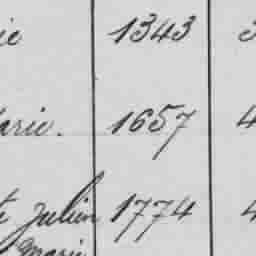 ie 1343 3
arie. 1657 4
Julien 1774 4
Marie